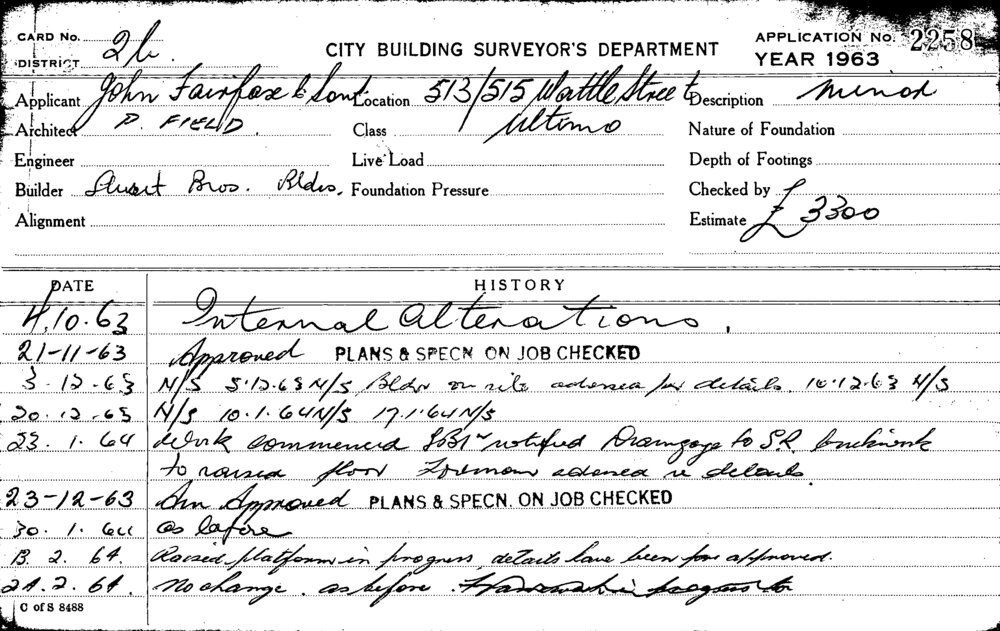 CARD No. 26. CITY BUILDING SURVEYOR'S DEPARTMENT APPLICATION No. 2258
DISTRICT YEAR 1963
Applicant John Fairfax & Sons Location 513/515 Wattle Street Description Minor
Architect P. FIELD. Class Ultimo Nature of Foundation
Engineer Live Load Depth of Footings
Builder Stuart Bros. Bldrs. Foundation Pressure Checked by
Alignment Estimate £3300
DATE HISTORY
4.10.63 Internal Alterations.
21-11-63 Approved PLANS & SPECN. ON JOB CHECKED
3.12.63 N/S 5.12.63 N/S Bldr on site for details. 10.12.63 N/S
20.12.63 N/S 10.1.64 N/S 17.1.64 N/S
23.1.64 Work commenced notified Drainage to S.R. brickwork
to raised floor Foreman details.
23-12-63 Am Approved PLANS & SPECN. ON JOB CHECKED
30.1.64 as before
13.2.64. Raised platform in progress, details have been approved.
24.2.64. No change. as before.
C of S 8488